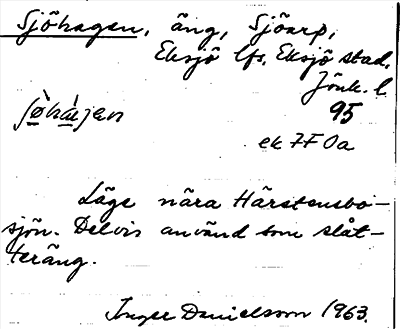 Sjöhagen, äng, Sjöarp,
Eksjö lfs, Eksjö stad,
Jönk. l.
95
ek 7F 0a
Läge nära Härstensbo-
sjön. Delvis använd som slåt-
teräng.
Inger Danielsson 1963.